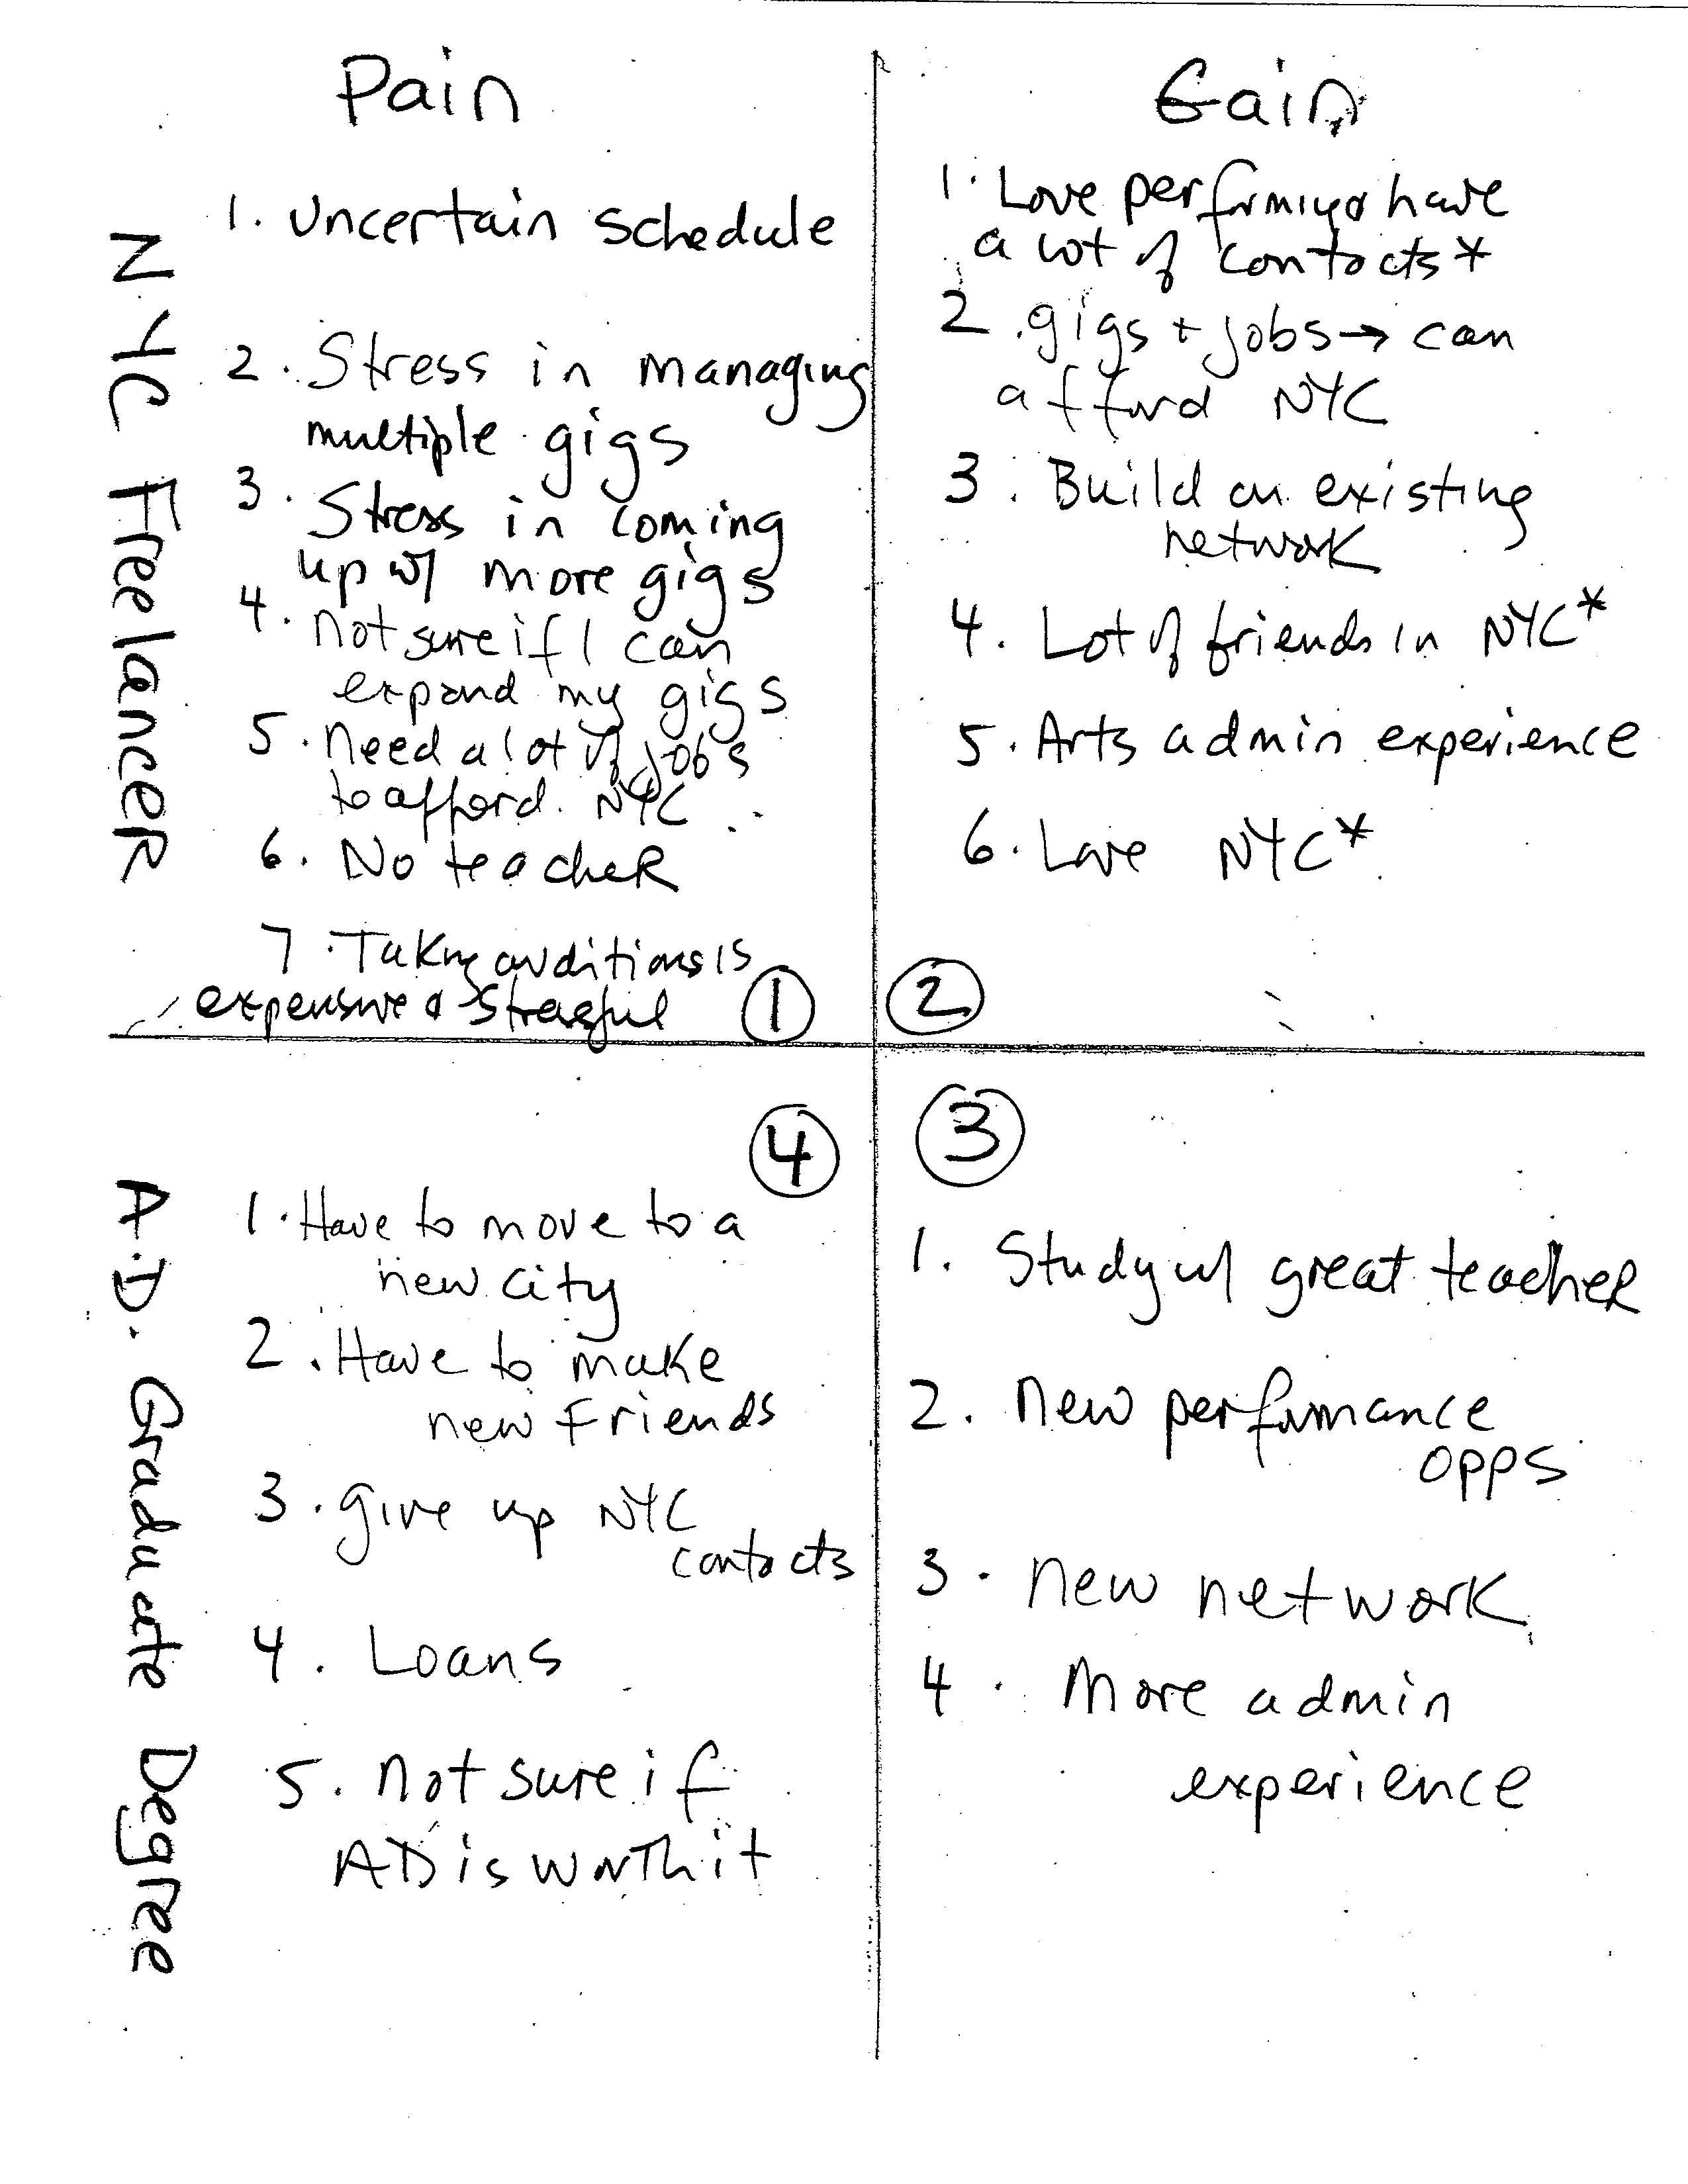 Pain
Gain
NYC Freelancer
1. Uncertain schedule
2. Stress in managing
multiple gigs
3. Stress in coming
up w/ more gigs
4. not sure if I can
expand my gigs
5. need a lot of jobs
to afford NYC
6. No teacher
7. Taking auditions is
expensive & stressful
1
1. Love performing & have
a lot of contacts*
2. gigs + jobs → can
afford NYC
3. Build on existing
network
4. Lot of friends in NYC*
5. Arts admin experience
6. Love NYC*
2
A.D. Graduate Degree
4
1. Have to move to a
new city
2. Have to make
new friends
3. give up NYC
contacts
4. Loans
5. not sure if
AD is worth it
3
1. Study w/ great teacher
2. new performance
opps
3. new network
4. More admin
experience